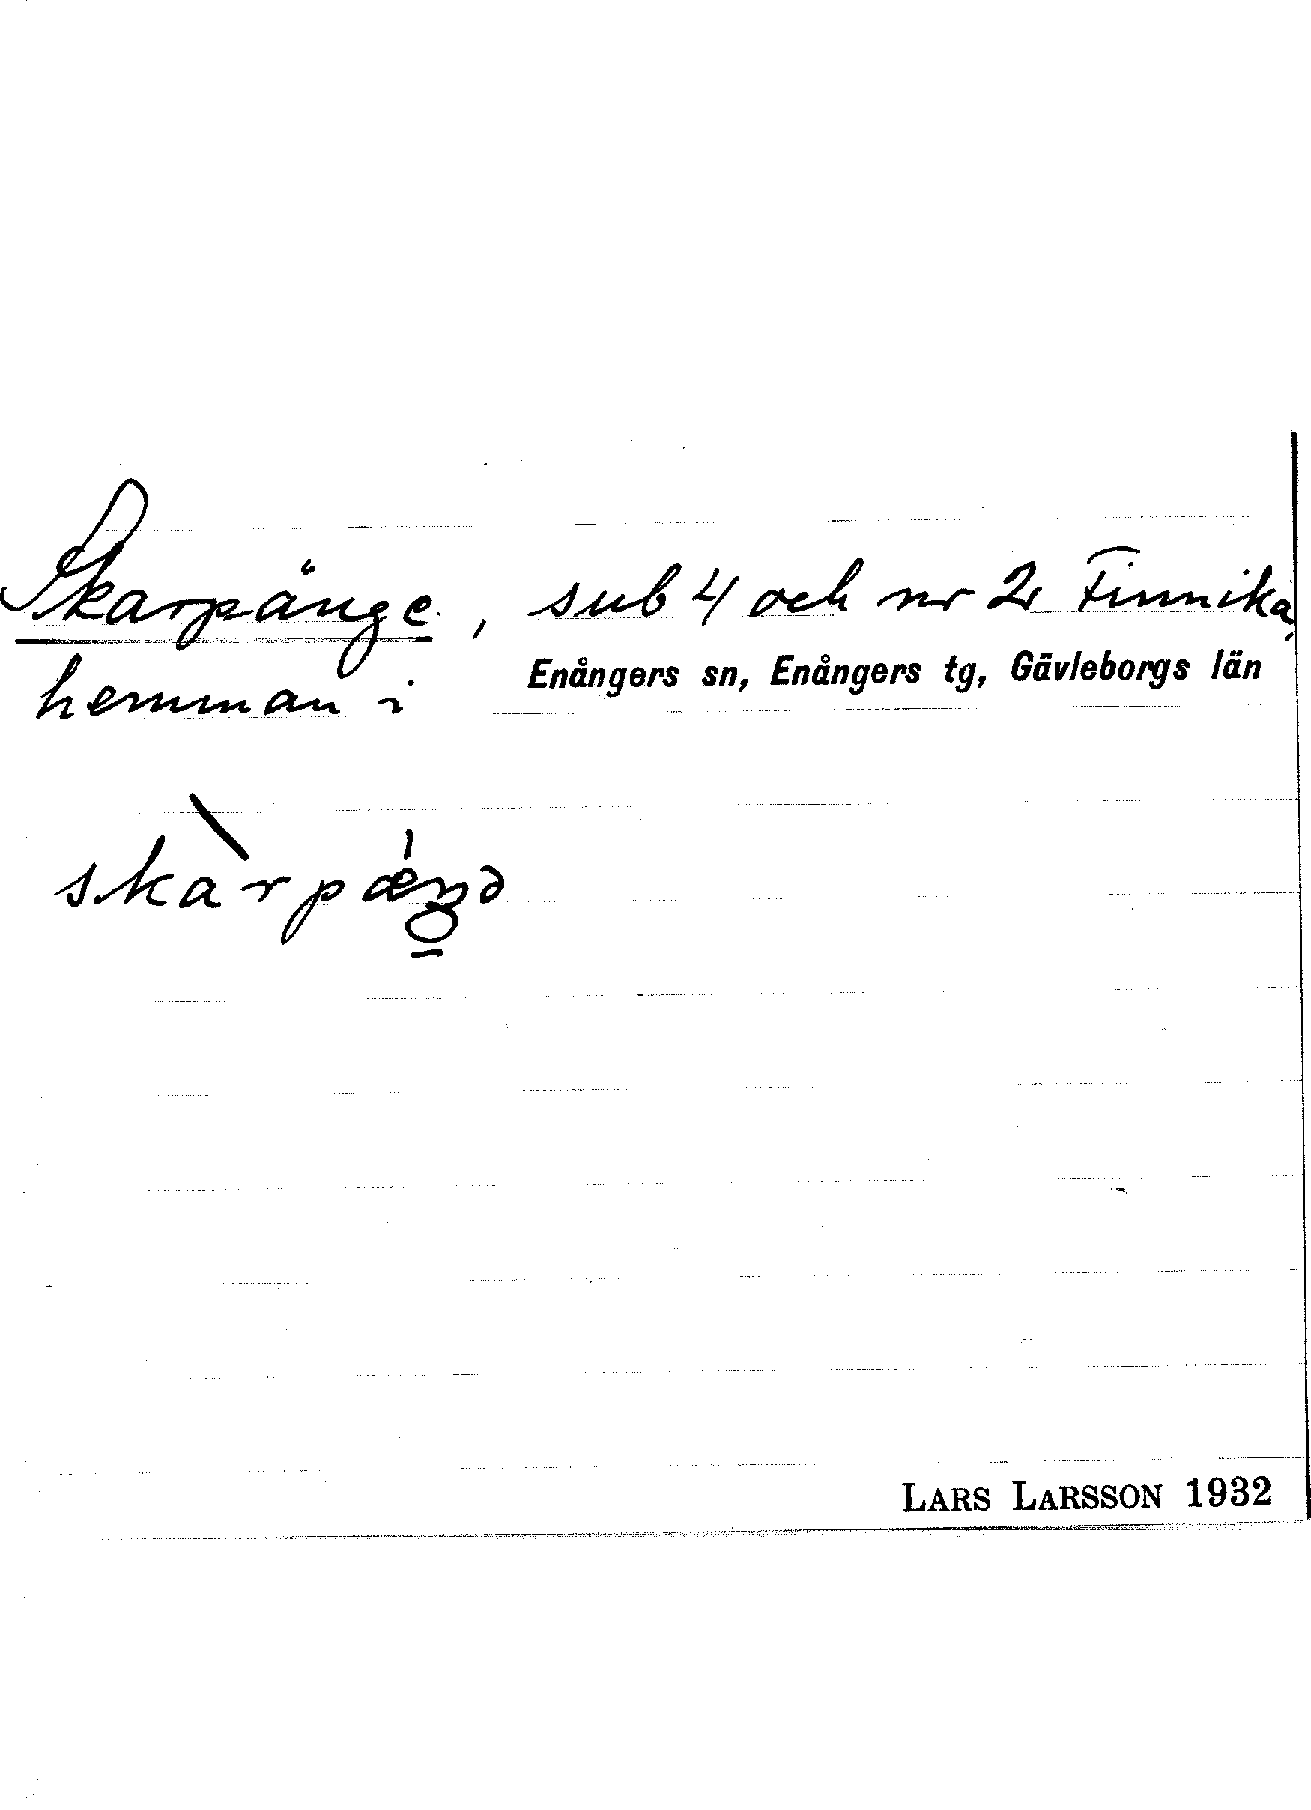 Skarpänge, sub 4 och nr 2 Finnika,
hemman i Enångers sn, Enångers tg, Gävleborgs län
LARS LARSSON 1932